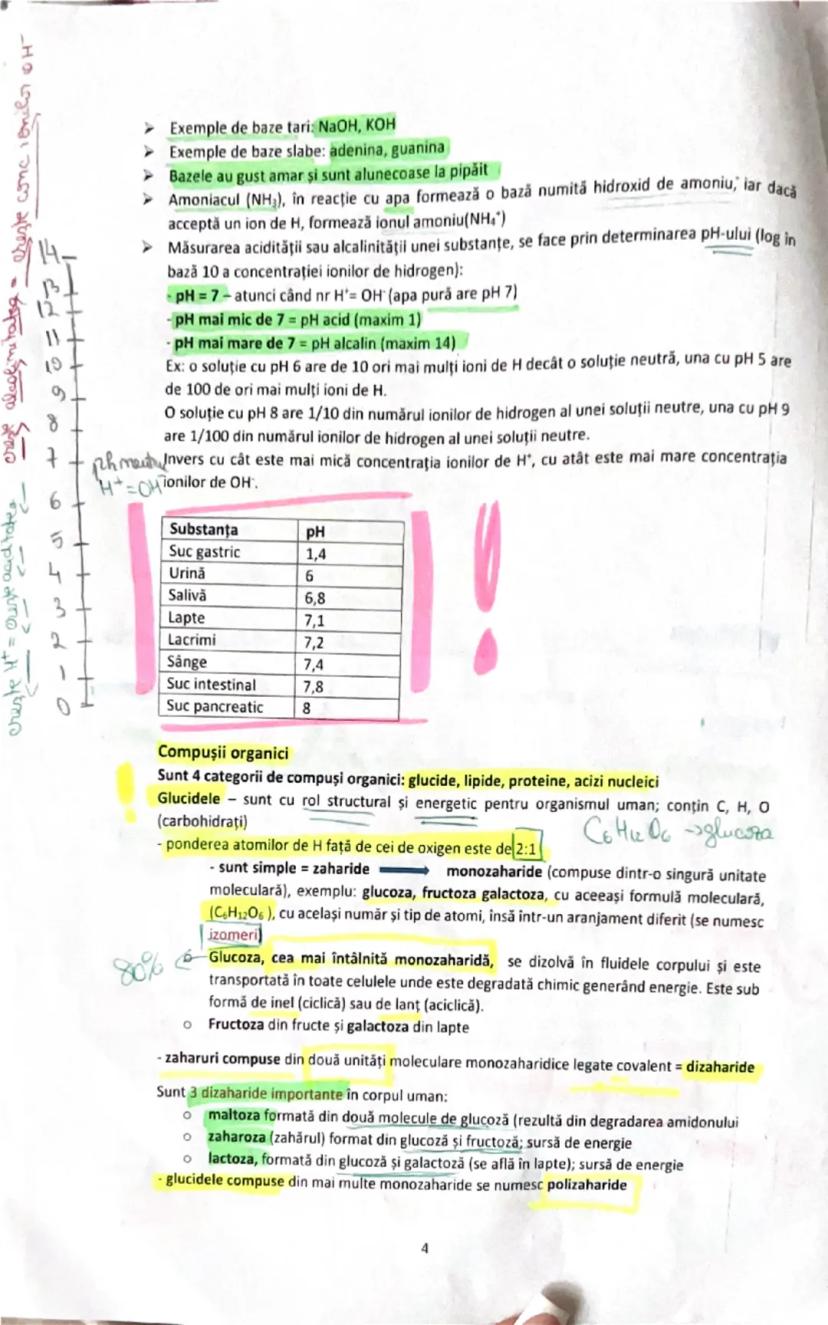 ➢ Exemple de baze tari: NaOH, KOH
➢ Exemple de baze slabe: adenina, guanina
➢ Bazele au gust amar și sunt alunecoase la pipăit
➢ Amoniacul (NH₃), în reacție cu apa formează o bază numită hidroxid de amoniu, iar dacă
acceptă un ion de H, formează ionul amoniu(NH₄⁺)
➢ Măsurarea acidității sau alcalinității unei substanțe, se face prin determinarea pH-ului (log în
bază 10 a concentrației ionilor de hidrogen):
- pH = 7 – atunci când nr H⁺= OH⁻ (apa pură are pH 7)
- pH mai mic de 7 = pH acid (maxim 1)
- pH mai mare de 7 = pH alcalin (maxim 14)
Ex: o soluție cu pH 6 are de 10 ori mai mulți ioni de H decât o soluție neutră, una cu pH 5 are
de 100 de ori mai mulți ioni de H.
O soluție cu pH 8 are 1/10 din numărul ionilor de hidrogen al unei soluții neutre, una cu pH 9
are 1/100 din numărul ionilor de hidrogen al unei soluții neutre.
Invers cu cât este mai mică concentrația ionilor de H⁺, cu atât este mai mare concentrația
ionilor de OH⁻.
crește alcalinitatea = crește conc ionilor OH⁻
crește H⁺ = crește aciditatea
14
13
12
11
10
9
8
7 ph neutru
H⁺=OH⁻
6
5
4
3
2
1
0
Substanța pH
Suc gastric 1,4
Urină 6
Salivă 6,8
Lapte 7,1
Lacrimi 7,2
Sânge 7,4
Suc intestinal 7,8
Suc pancreatic 8
!
Compușii organici
Sunt 4 categorii de compuși organici: glucide, lipide, proteine, acizi nucleici
! Glucidele – sunt cu rol structural și energetic pentru organismul uman; conțin C, H, O
(carbohidrați)
C₆H₁₂O₆ → glucoza
- ponderea atomilor de H față de cei de oxigen este de 2:1
- sunt simple = zaharide → monozaharide (compuse dintr-o singură unitate
moleculară), exemplu: glucoza, fructoza galactoza, cu aceeași formulă moleculară,
(C₆H₁₂O₆ ), cu același număr și tip de atomi, însă într-un aranjament diferit (se numesc
izomeri)
80% o Glucoza, cea mai întâlnită monozaharidă, se dizolvă în fluidele corpului și este
transportată în toate celulele unde este degradată chimic generând energie. Este sub
formă de inel (ciclică) sau de lanț (aciclică).
o Fructoza din fructe și galactoza din lapte
- zaharuri compuse din două unități moleculare monozaharidice legate covalent = dizaharide
Sunt 3 dizaharide importante în corpul uman:
o maltoza formată din două molecule de glucoză (rezultă din degradarea amidonului
o zaharoza (zahărul) format din glucoză și fructoză; sursă de energie
o lactoza, formată din glucoză și galactoză (se află în lapte); sursă de energie
- glucidele compuse din mai multe monozaharide se numesc polizaharide
4